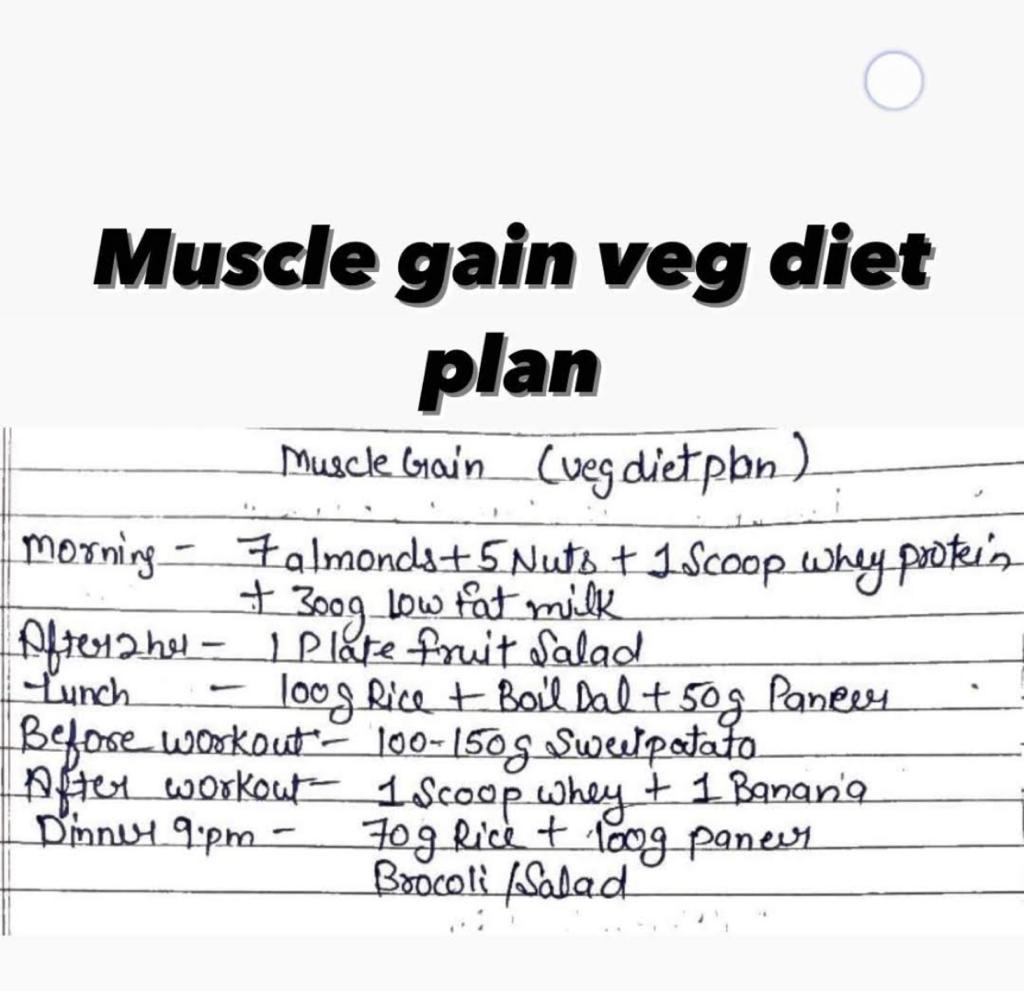 Muscle gain veg diet
plan
Muscle Gain (veg diet plan)
Morning - 7 almonds + 5 Nuts + 1 Scoop whey protein
+ 300g Low fat milk
After 2 hr - 1 Plate fruit Salad
Lunch - 100g Rice + Boil Dal + 50g Paneer
Before workout - 100-150g Sweetpatato
After workout - 1 Scoop whey + 1 Banana
Dinner 9:pm - 70g Rice + 100g paneer
Brocoli / Salad